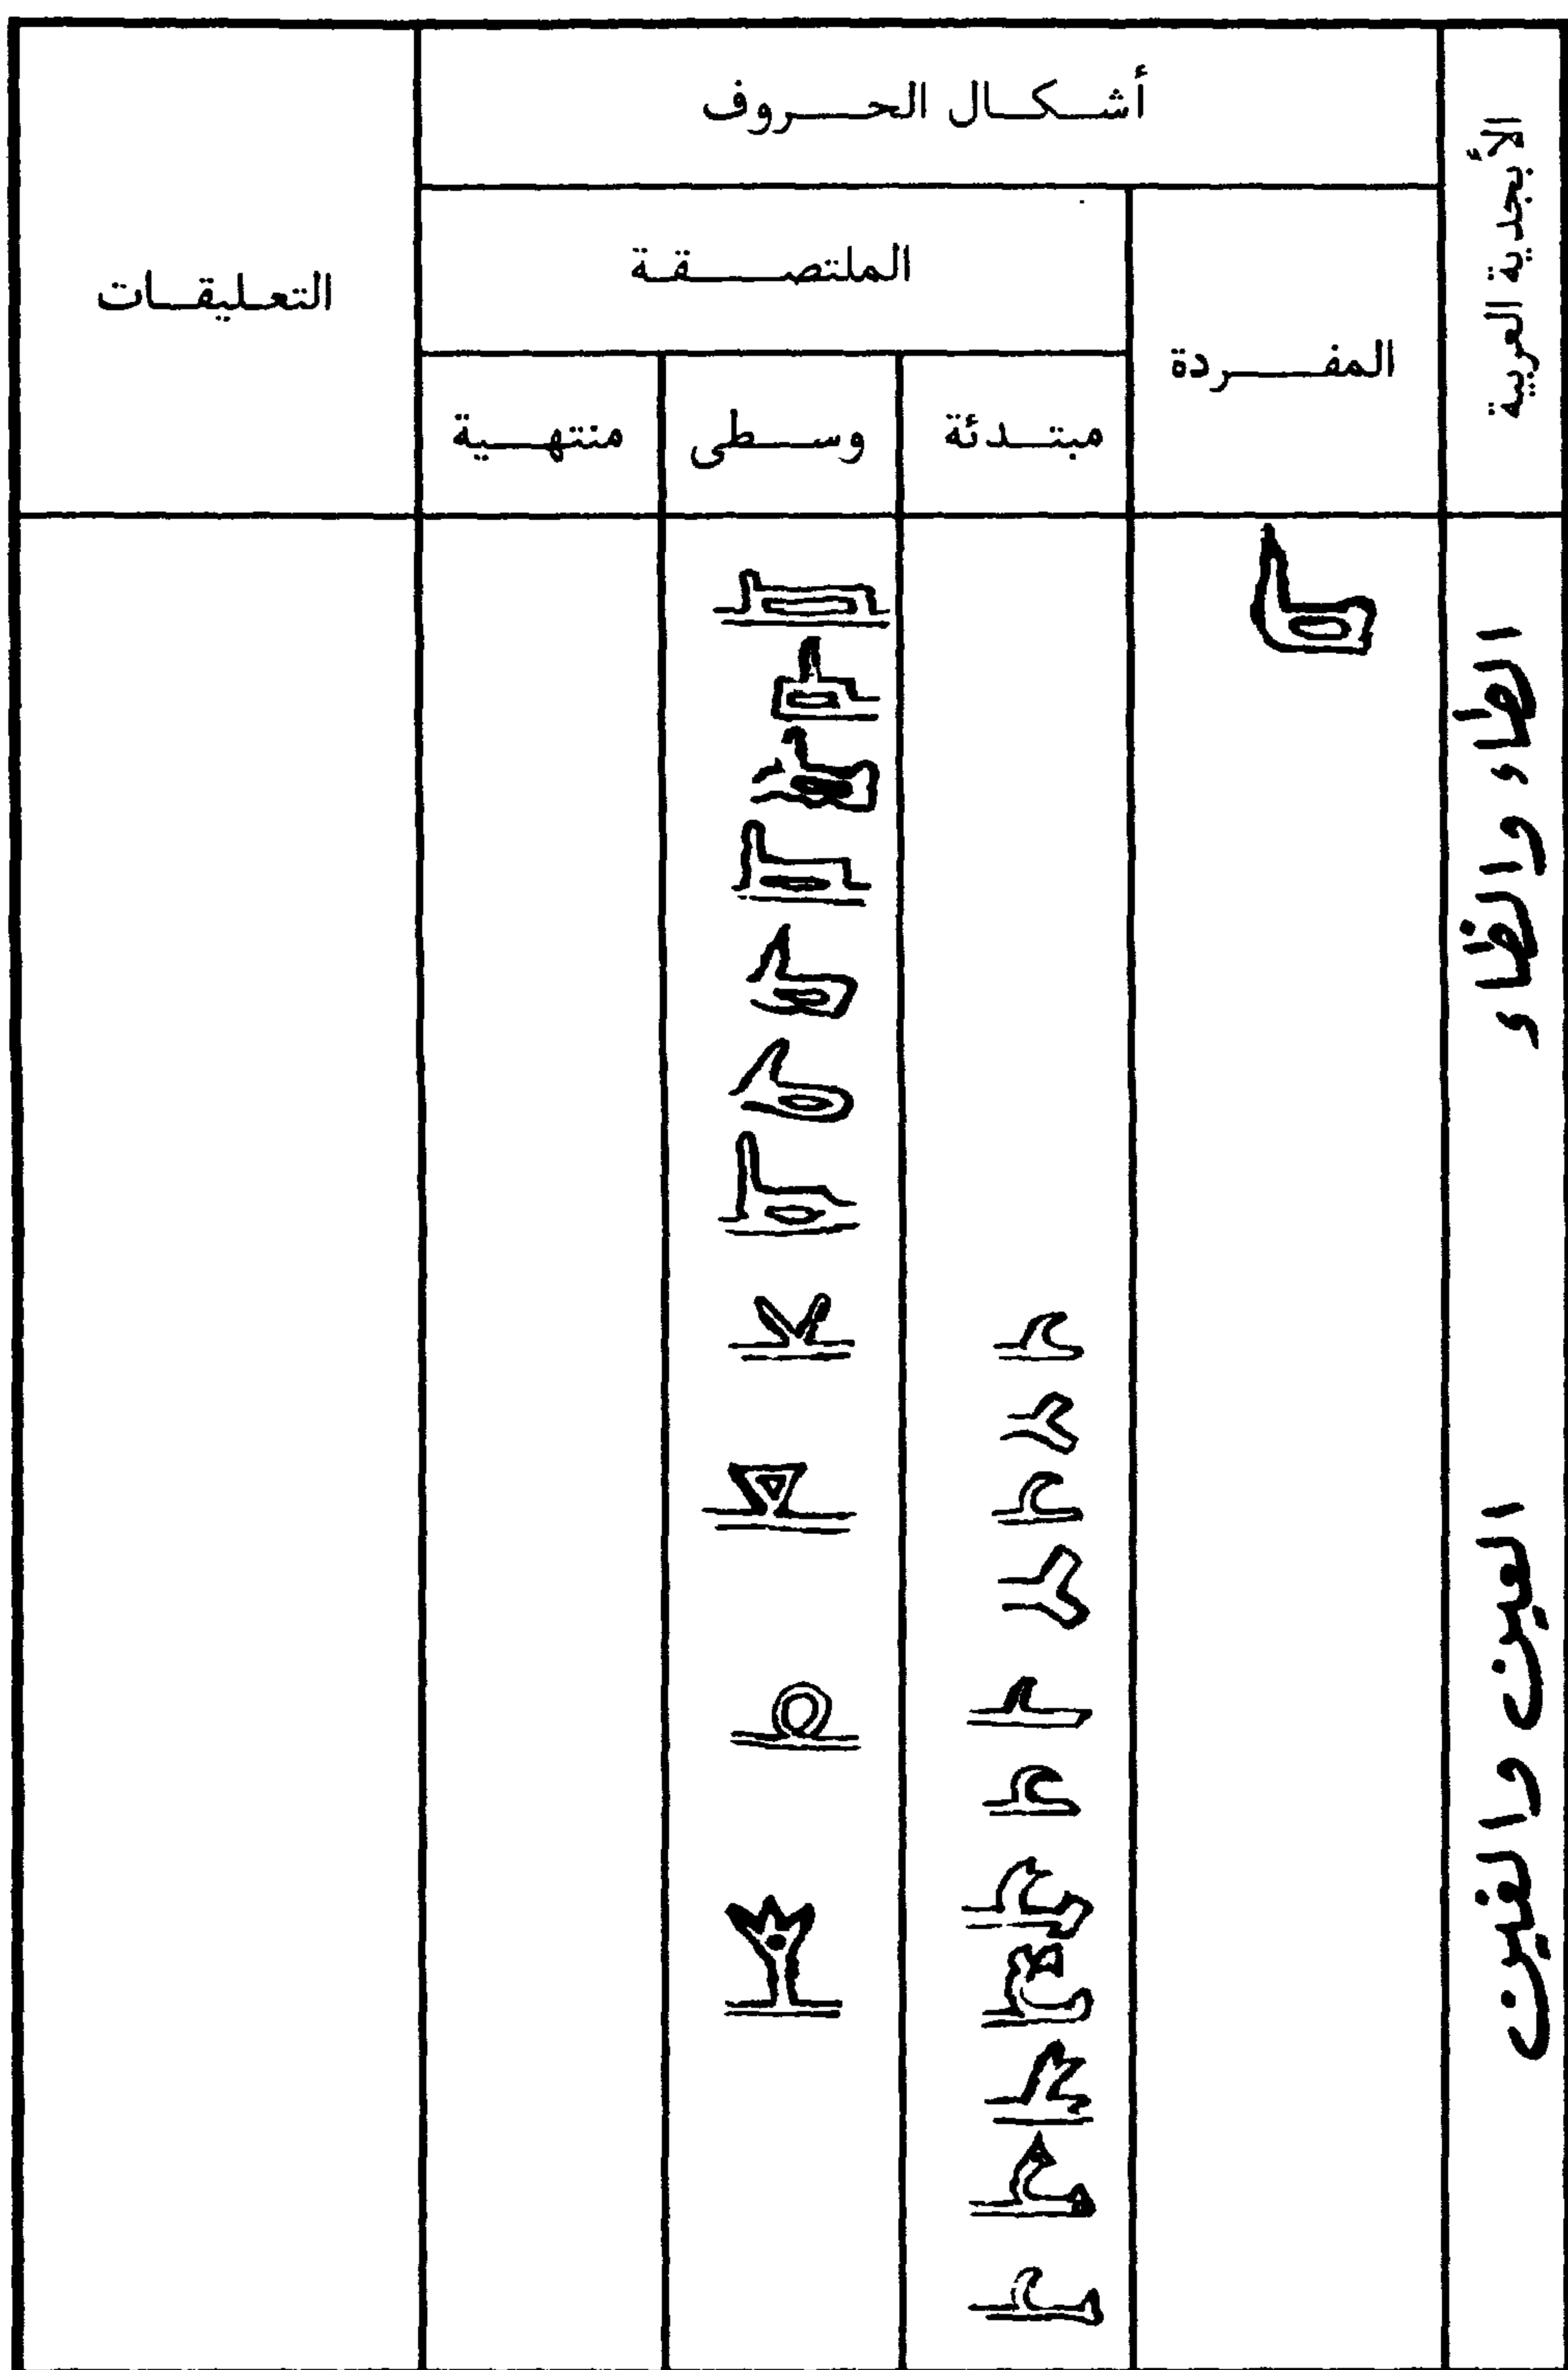 الأبجدية العربية
أشكال الحروف
المفردة
الملتصقة
مبتدئة
وسطى
منتهية
التعليقات
الطاء والظاء
العين والغين